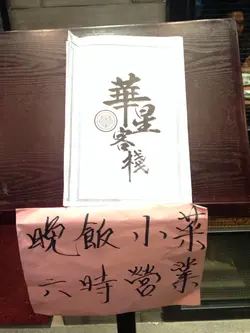 華星客棧
晚飯小菜
六時營業